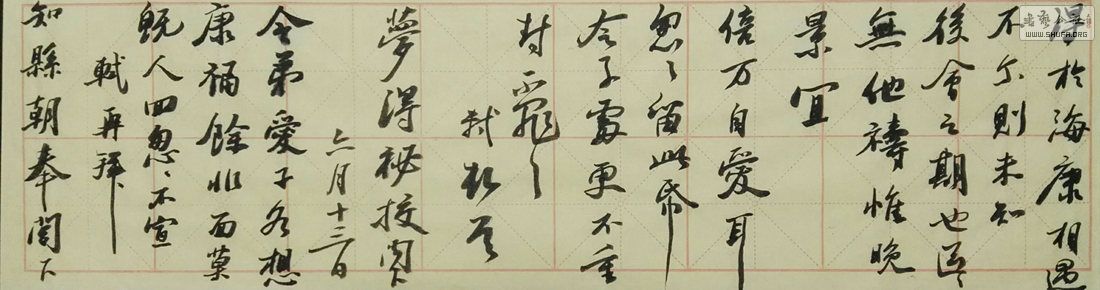 得於海康相遇
不尓則未知
後會之期也區
無他禱惟晚
景宜
倍万自愛耳
忽〻留此帋
令子處更不重
封不罪〻
軾頓首
夢得祕校閣下
六月十三日
令弟愛子各想
康福餘非面莫
既人回怱〻不宣
軾再拜
知縣朝奉閣下
www.SHUFA.ORG